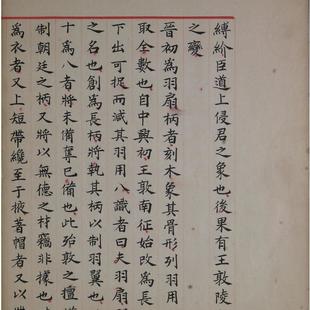 縛紒臣道上侵君之象也後果有王敦陵
之變
晉初為羽扇柄者刻木象其骨形列羽用
取全數也自中興初王敦南征始改為長
下出可捉而減其羽用八識者曰夫羽扇
之名也創為長柄將執其柄以制羽翼也
十為八者將未備奪已備也此殆敦之擅
制朝廷之柄又將以無德之材竊非據也
為衣者又上短帶纔至于掖著帽者又以